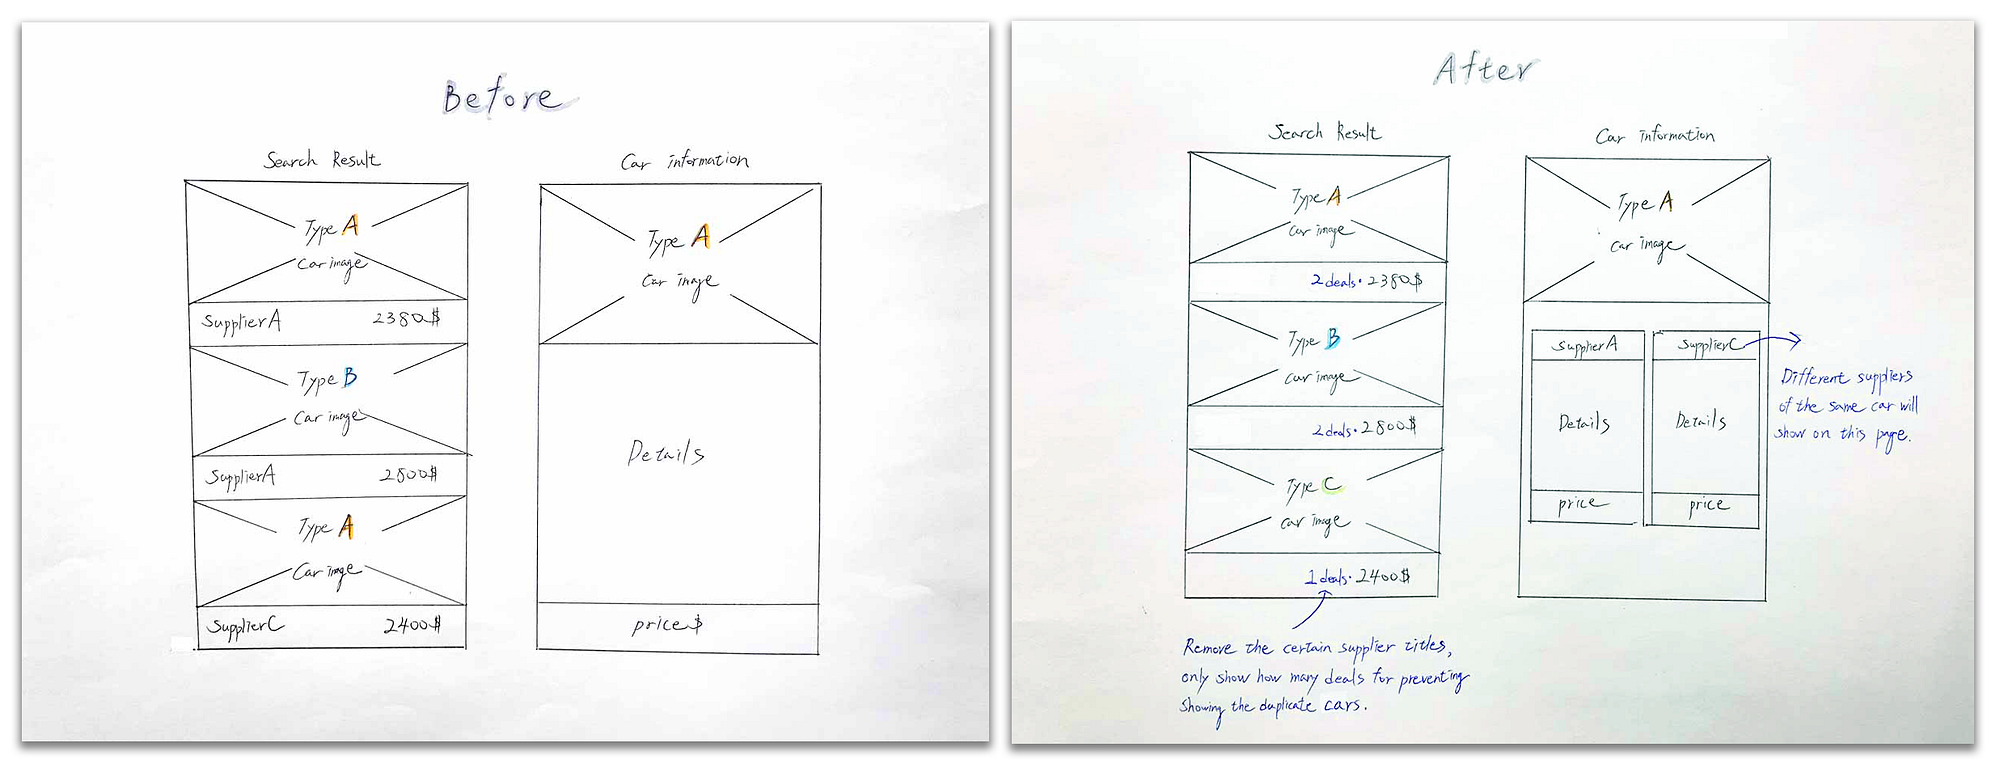 Before
Search Result
Type A
Car image
SupplierA 2380$
Type B
Car image
SupplierA 2800$
Type A
Car image
SupplierC 2400$
Car information
Type A
Car image
Details
price$
After
Search Result
Type A
Car image
2 deals · 2380$
Type B
Car image
2 deals · 2800$
Type C
Car image
1 deals · 2400$
Remove the certain supplier titles,
only show how many deals for preventing
showing the duplicate cars.
Car information
Type A
Car image
SupplierA SupplierC
Details Details
price price
Different suppliers
of the same car will
show on this page.